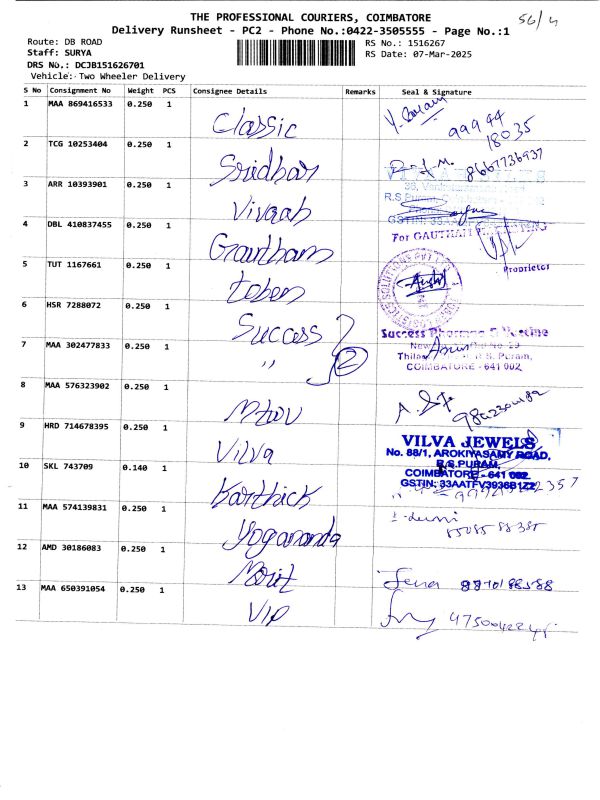 THE PROFESSIONAL COURIERS, COIMBATORE
56/4
Delivery Runsheet - PC2 - Phone No.:0422-3505555 - Page No.:1
Route: DB ROAD
RS No.: 1516267
Staff: SURYA
RS Date: 07-Mar-2025
DRS No.: DCJB151626701
Vehicle: Two Wheeler Delivery
S No Consignment No Weight PCS Consignee Details Remarks Seal & Signature
1 MAA 869416533 0.250 1 Classic 99944 18035
2 TCG 10253404 0.250 1 Sridhar 8667736937
3 ARR 10393901 0.250 1 Vivaah
R.S.
GSTIN: 33AA
4 DBL 410837455 0.250 1 Grautham
For GAUTHAM
Proprietor
5 TUT 1167661 0.250 1
6 HSR 7288072 0.250 1 Success
Success Pharma
7 MAA 302477833 0.250 1 " 2
New No 29
R.S. Puram,
COIMBATORE - 641 002
8 MAA 576323902 0.250 1
9 HRD 714678395 0.250 1 Vilva
VILVA JEWELS
No. 88/1, AROKIYASAMY ROAD,
R.S.PURAM,
COIMBATORE - 641 002
GSTIN: 33AATFV3936B1Z2
10 SKL 743709 0.140 1 Karthick
11 MAA 574139831 0.250 1 Yogananda
12 AMD 30186083 0.250 1
13 MAA 650391054 0.250 1 VIP